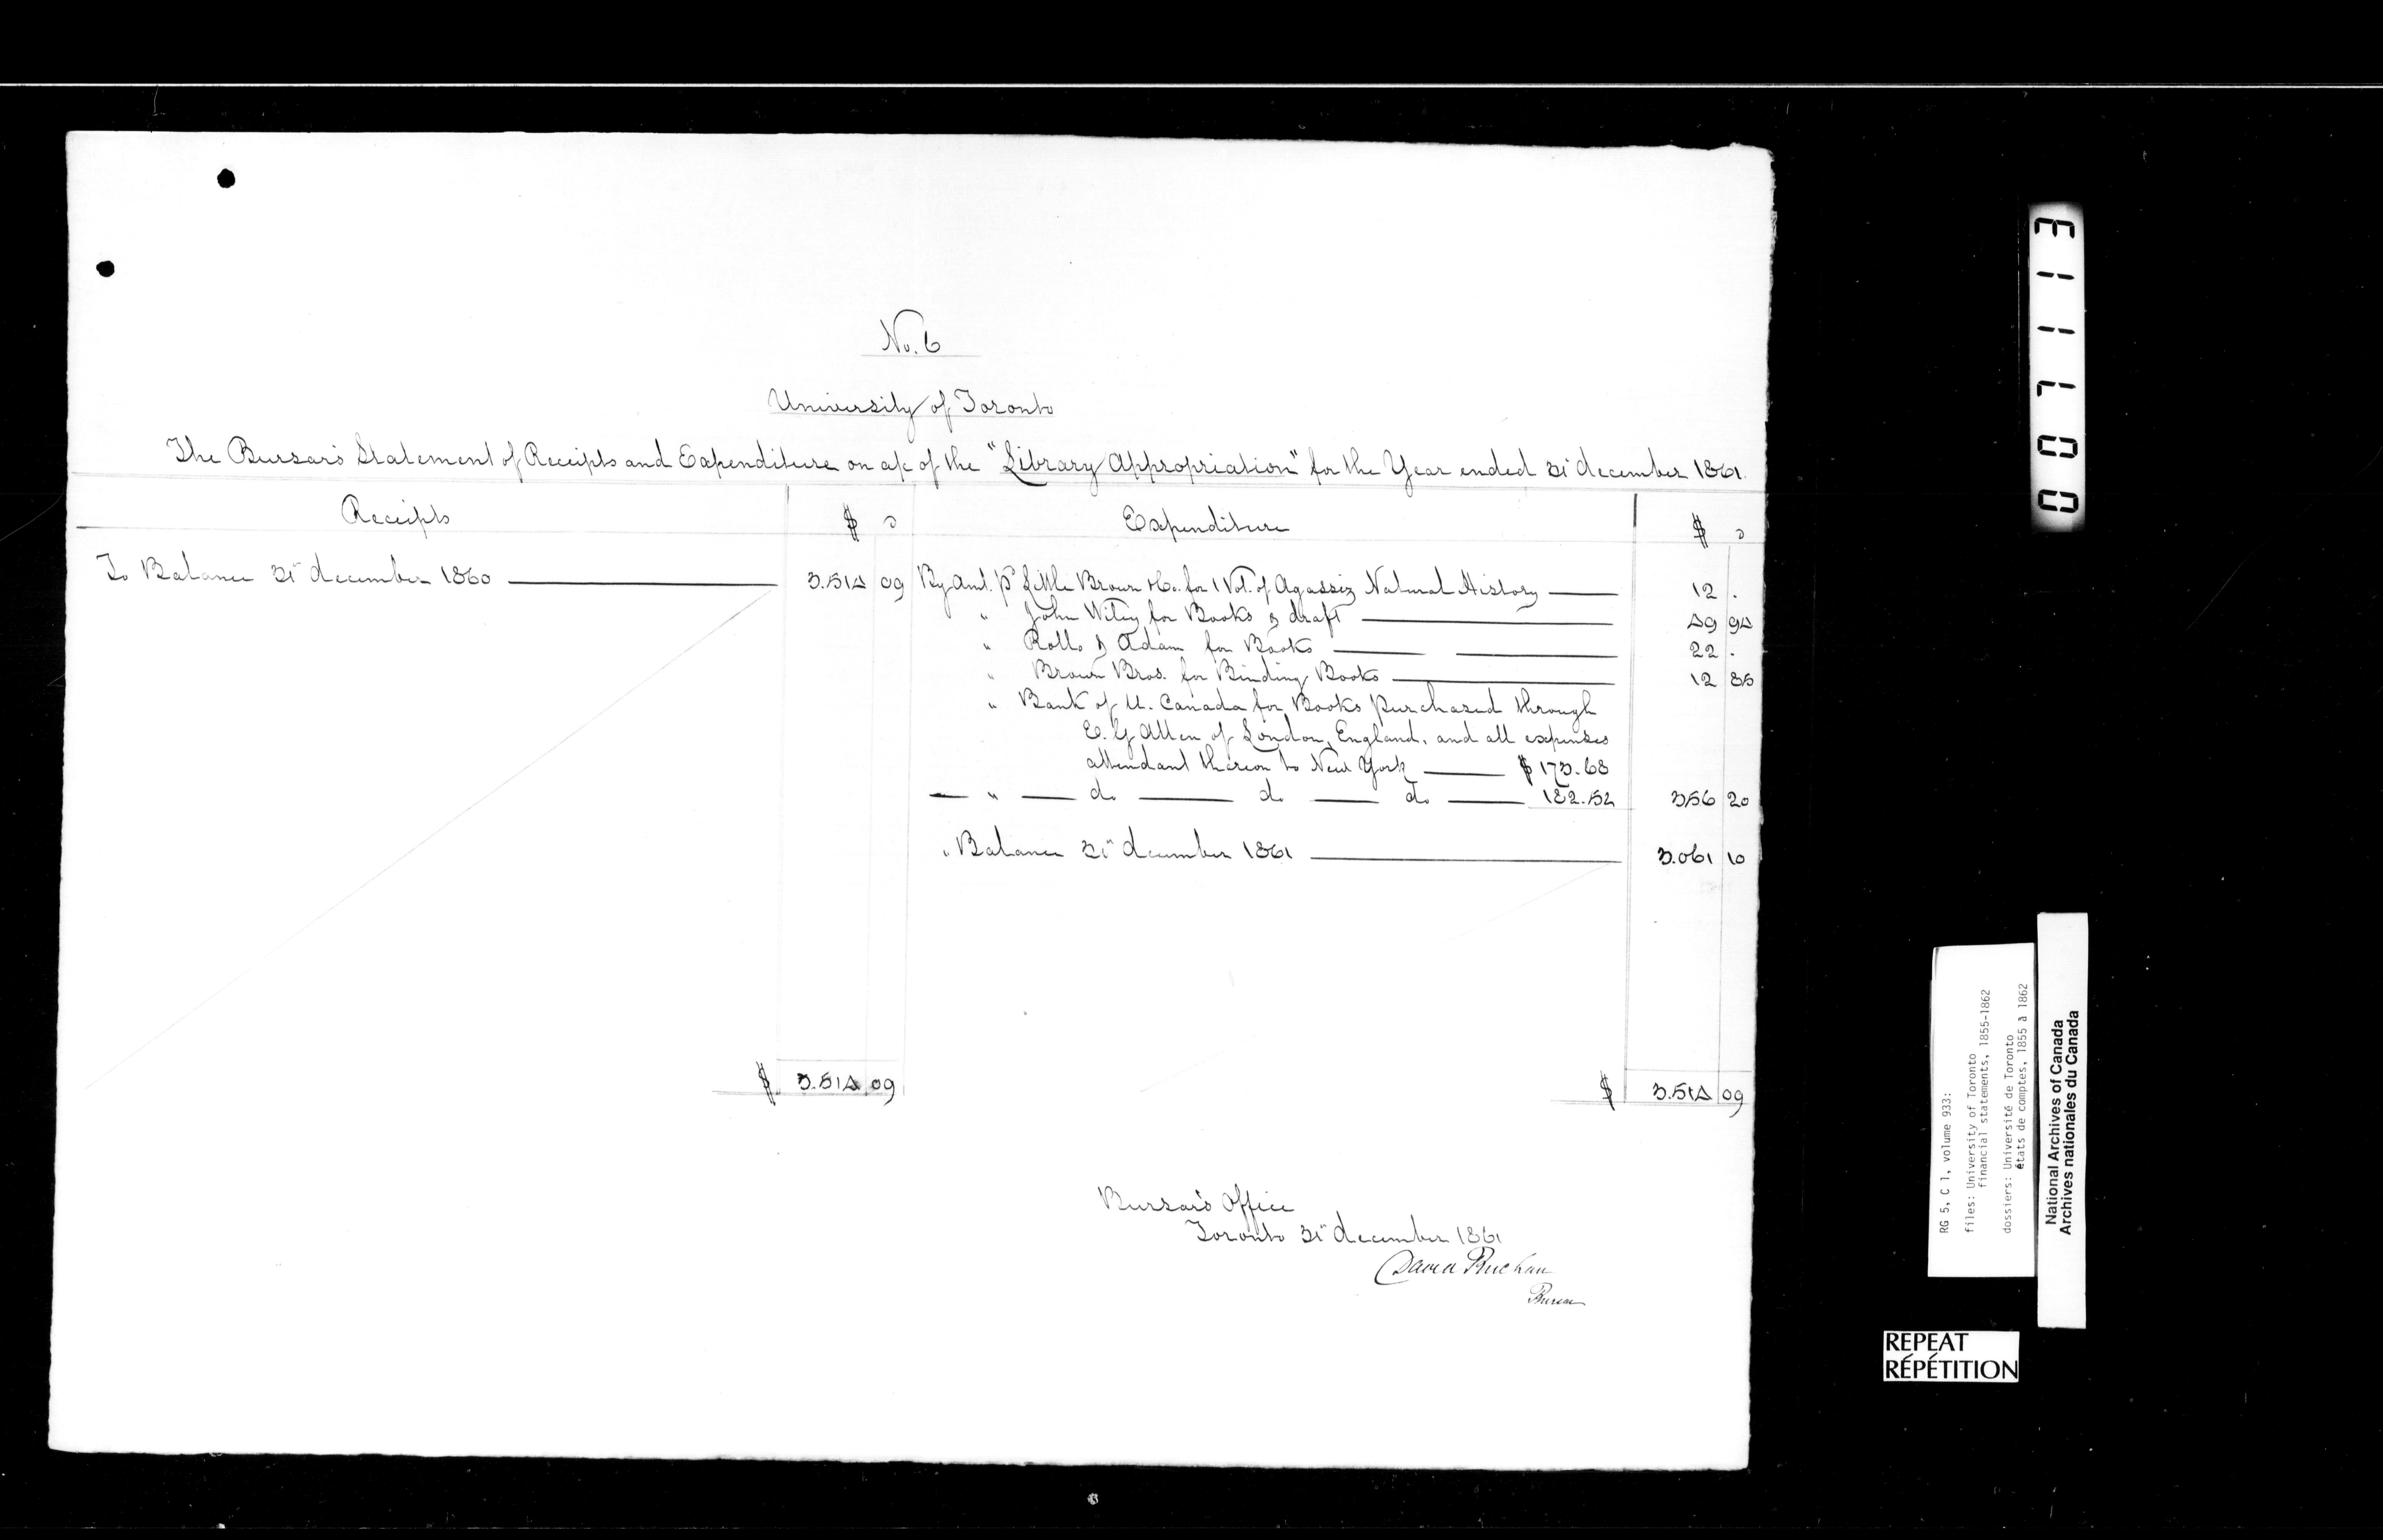 No. 6
University of Toronto
The Bursar's Statement of Receipts and Expenditure on a/c of the "Library Appropriation" for the Year ended 31st december 1861.
Receipts $ c Expenditure $ c
To Balance 31st december 1860 3.514 09
By Amt. pd Little Brown & Co. for 1 Vol. of Agassiz Natural History 12 .
" John Wiley for Books & draft 49 94
" Rollo & Adam for Books 22 .
" Brown Bros. for Binding Books 12 85
" Bank of U. Canada for Books purchased through
E. G Allen of London, England, and all expenses
attendant thereon to New York $ 173.68
" do do do 182.52 356 20
" Balance 31st december 1861 3.061 10
$ 3.514 09 $ 3.514 09
Bursar's Office
Toronto 31st december 1861
David Buchan
Bursar
007113
RG 5, C 1, volume 933:
files: University of Toronto
financial statements, 1855-1862
dossiers: Université de Toronto
états de comptes, 1855 à 1862
National Archives of Canada
Archives nationales du Canada
REPEAT
RÉPÉTITION